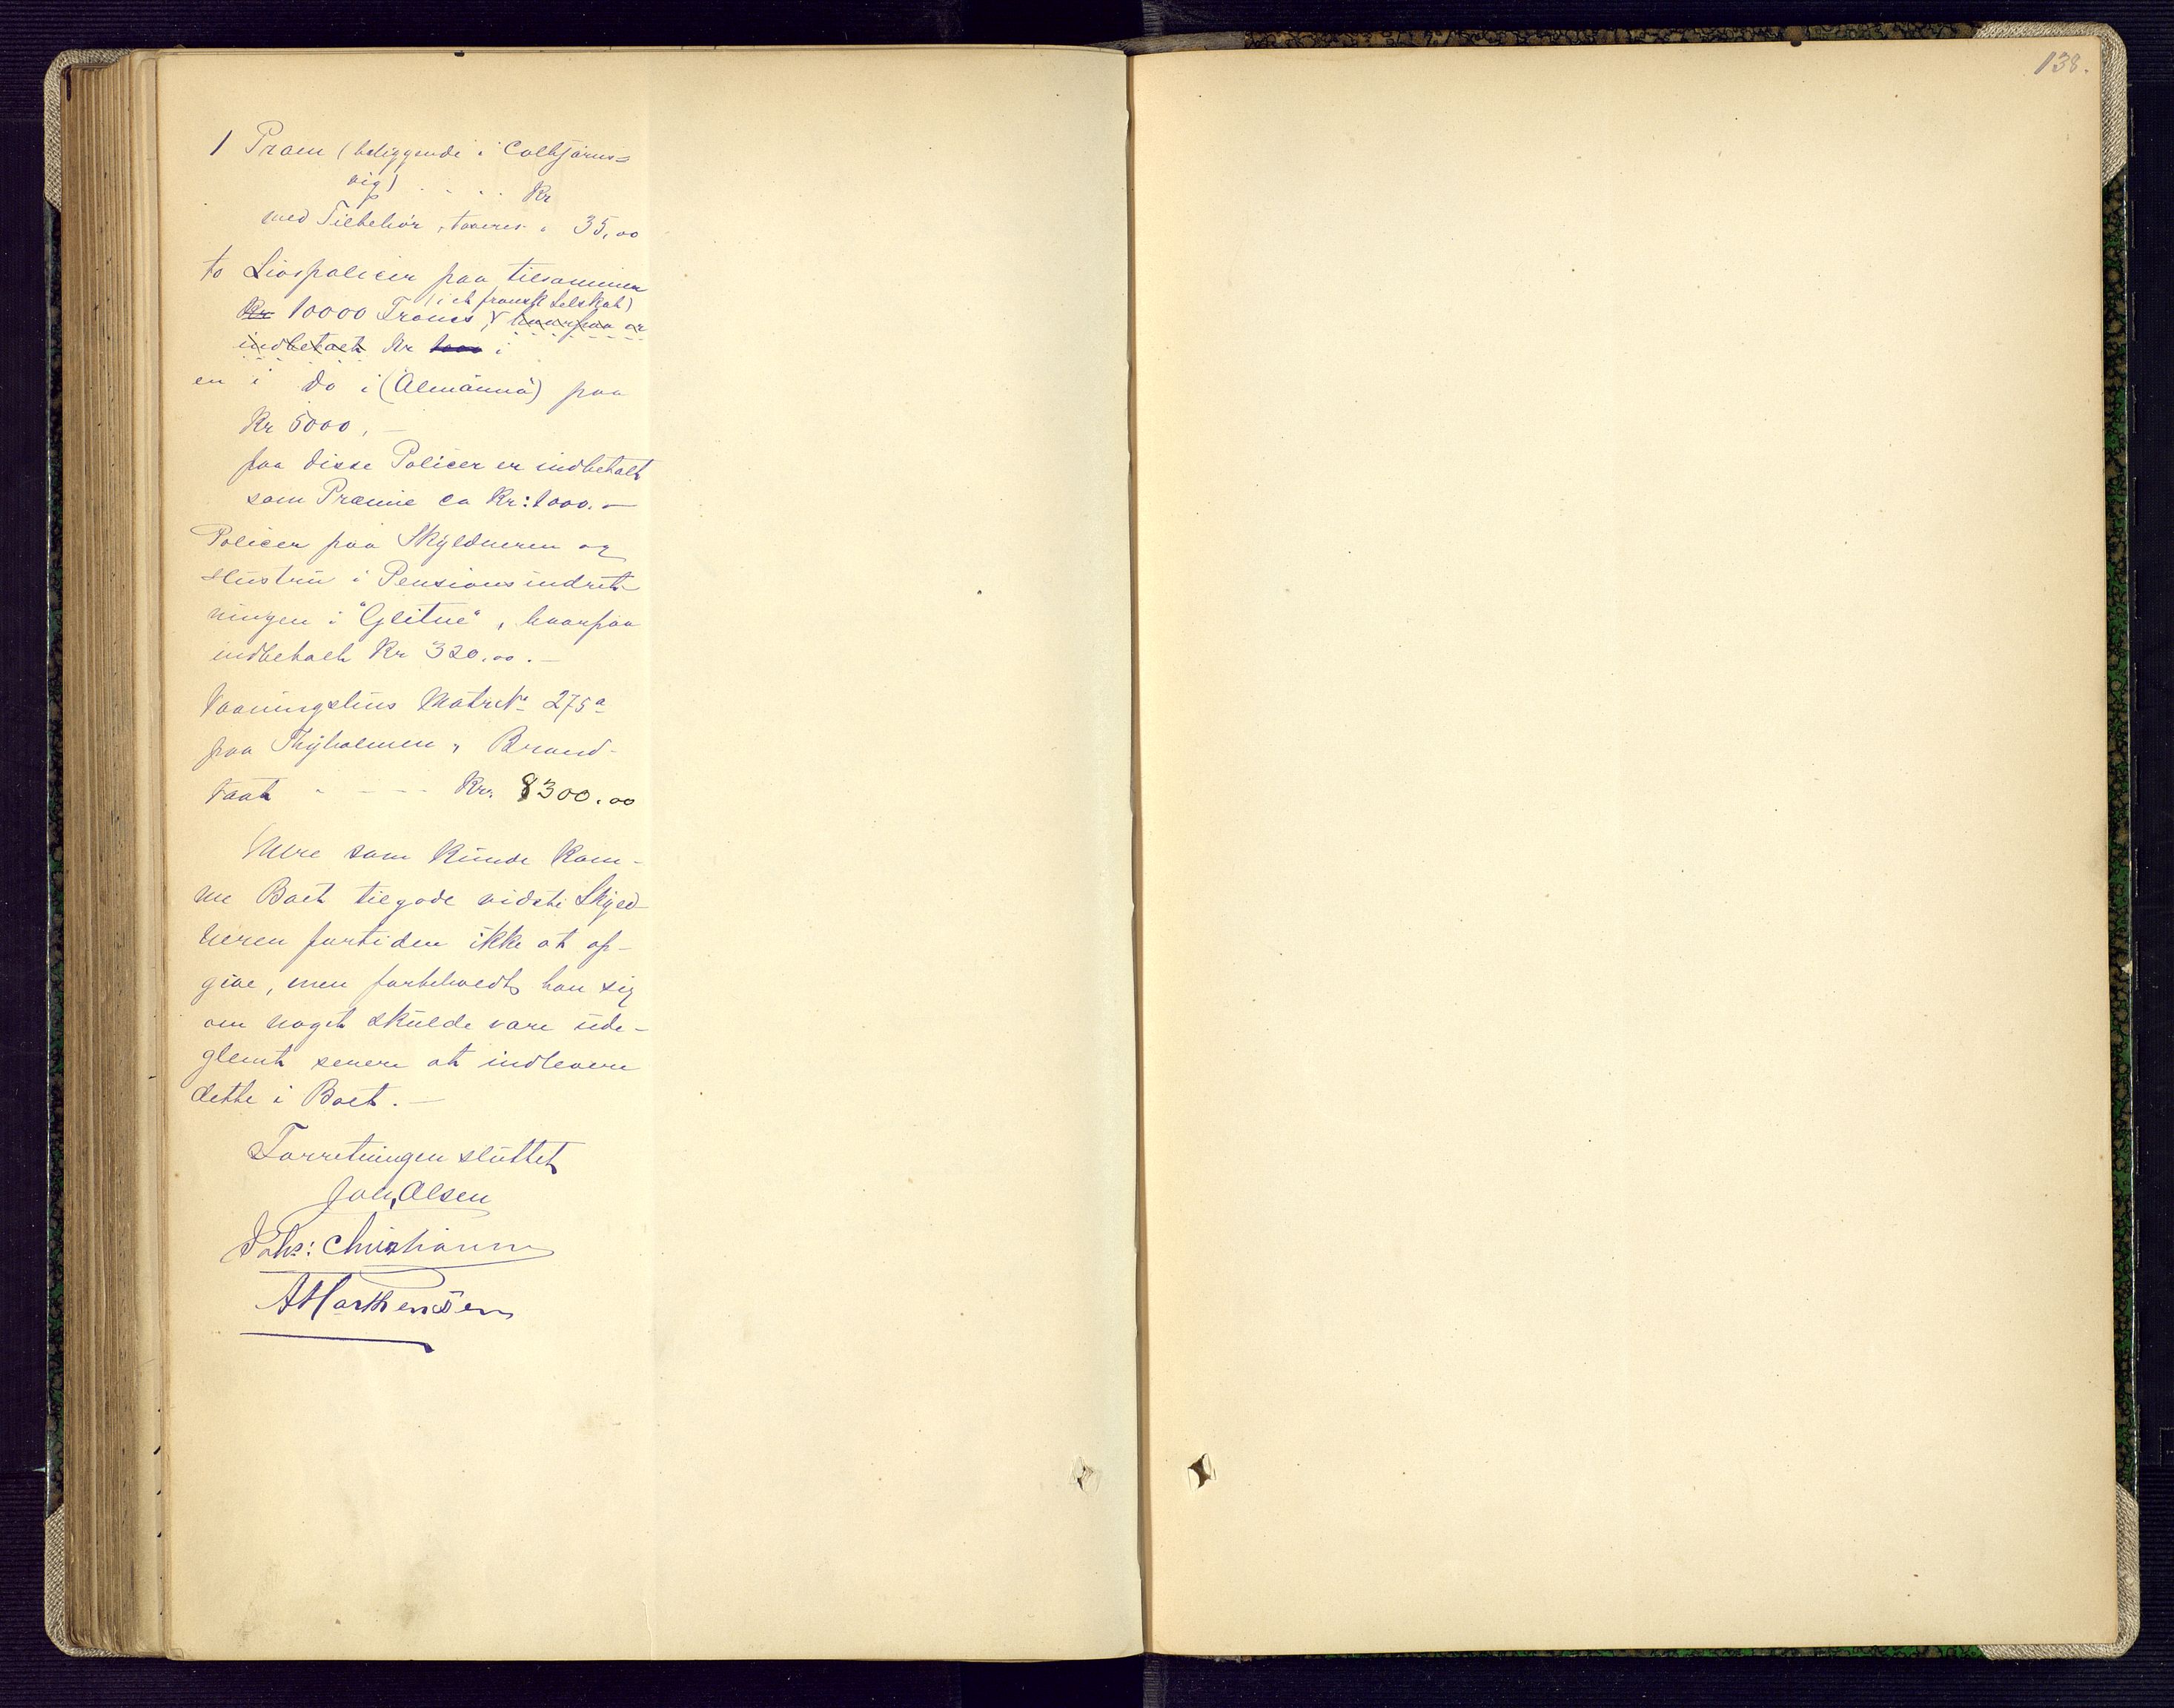 138.
1 Pram (beliggende i Colbjørns=
vig) . . . . Kr
med Tilbehør, taxeres " 35,00
to Livspolicer paa tilsammen
(i et fransk Selskab)
Kr 10000 Francs, hvorpaa er
indbetalt Kr i
en i do i (Almänna) paa
Kr 5000, —
paa disse Policer er indbetalt
som Præmie ca Kr: 1000. —
Policer paa Skyldneren og
Hustru i Pensionsindret-
ningen i "Glitne", hvorpaa
indbetalt Kr 320.00. —
Vaaningshus Matr № 275a
paa Thyholmen, Brand-
taxt - - - - Kr. 8300.00
Mere som kunde kom-
me Boet tilgode vidste Skyld-
neren fortiden ikke at op-
give, men forbeholdt han sig
om noget skulde være ude-
glemt senere at indlevere
dette i Boet. —
Forretningen sluttet
Joh, Olsen
Johs: Christiansen
A Marthensen